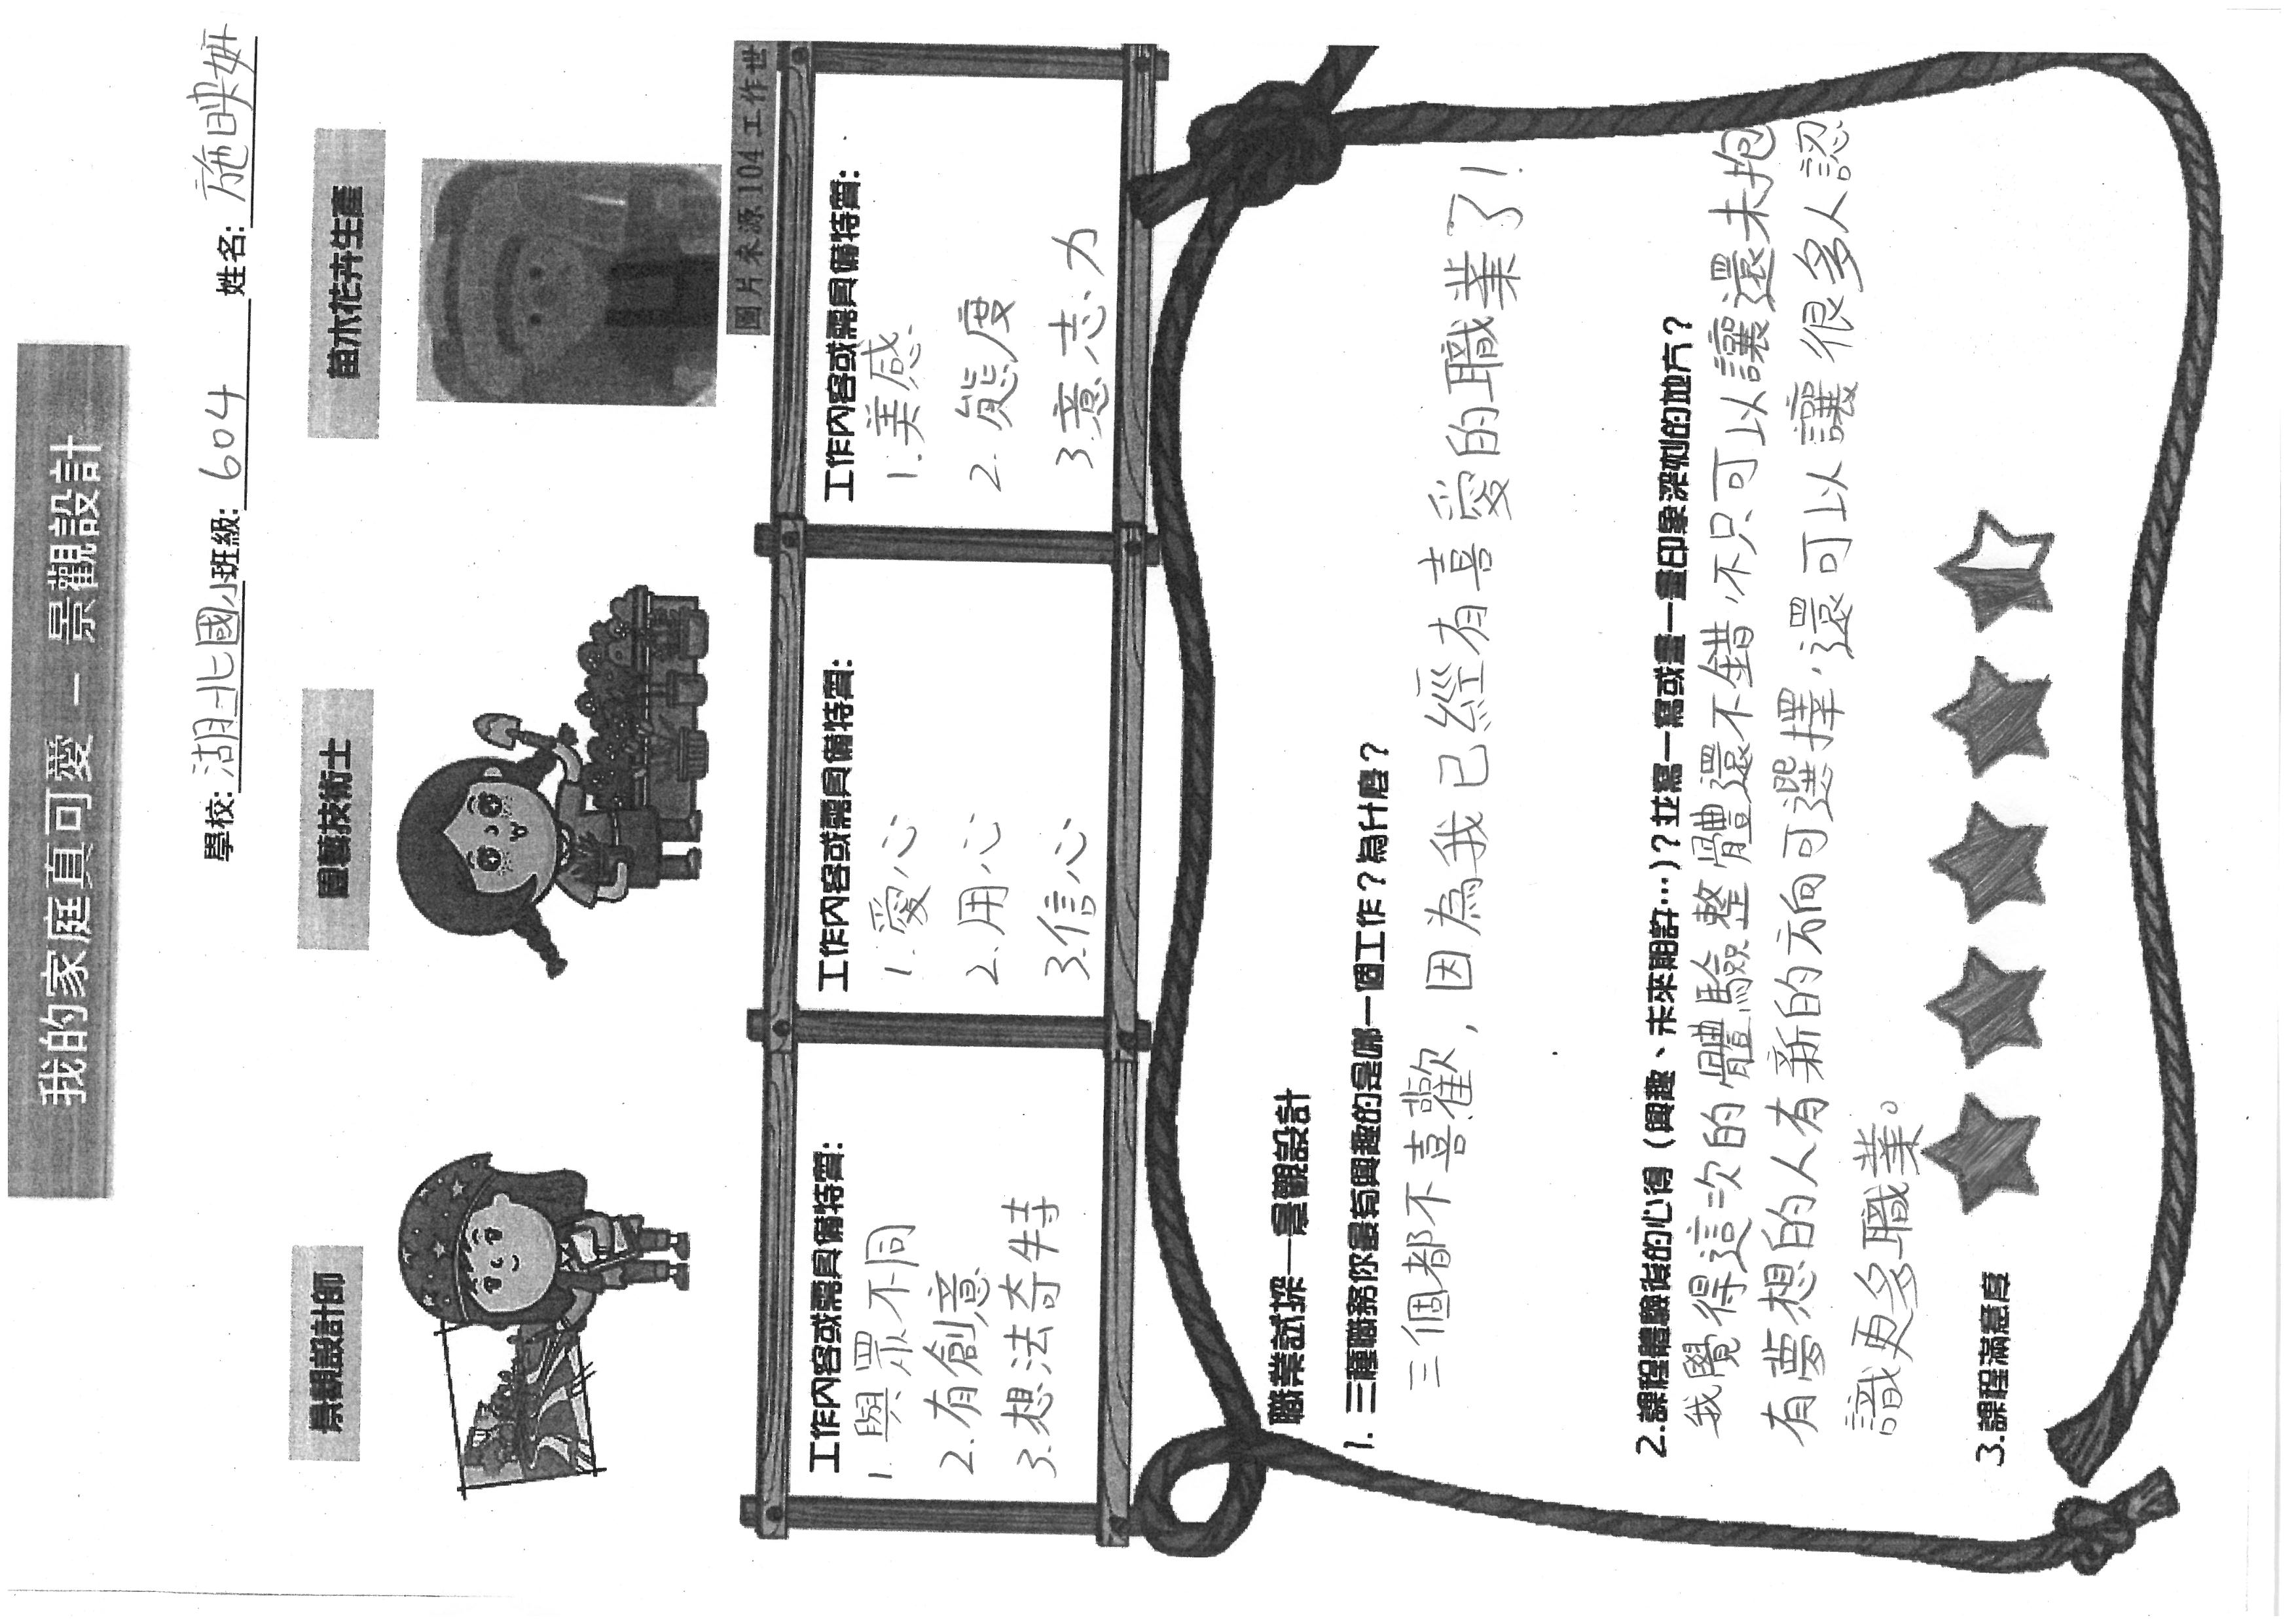 我的家庭真可愛 – 景觀設計
學校: 湖北國小 班級: 604 姓名: 施映妍
景觀設計師 園藝技術士 苗木花卉生產
圖片來源104工作世
工作內容或需具備特質: 工作內容或需具備特質: 工作內容或需具備特質:
1.與眾不同 1.愛心 1.美感
2.有創意 2.用心 2.態度
3.想法奇特 3.信心 3.意志力
職業試探—景觀設計
1. 三種職務你最有興趣的是哪一個工作？為什麼？
三個都不喜歡，因為我已經有喜愛的職業了!
2.課程體驗後的心得（興趣、未來期許…）？並寫一寫或畫一畫印象深刻的地方？
我覺得這次的體驗整體還不錯，不只可以讓還未抱
有夢想的人有新的方向可選擇，還可以讓很多人認
識更多職業。
3.課程滿意度